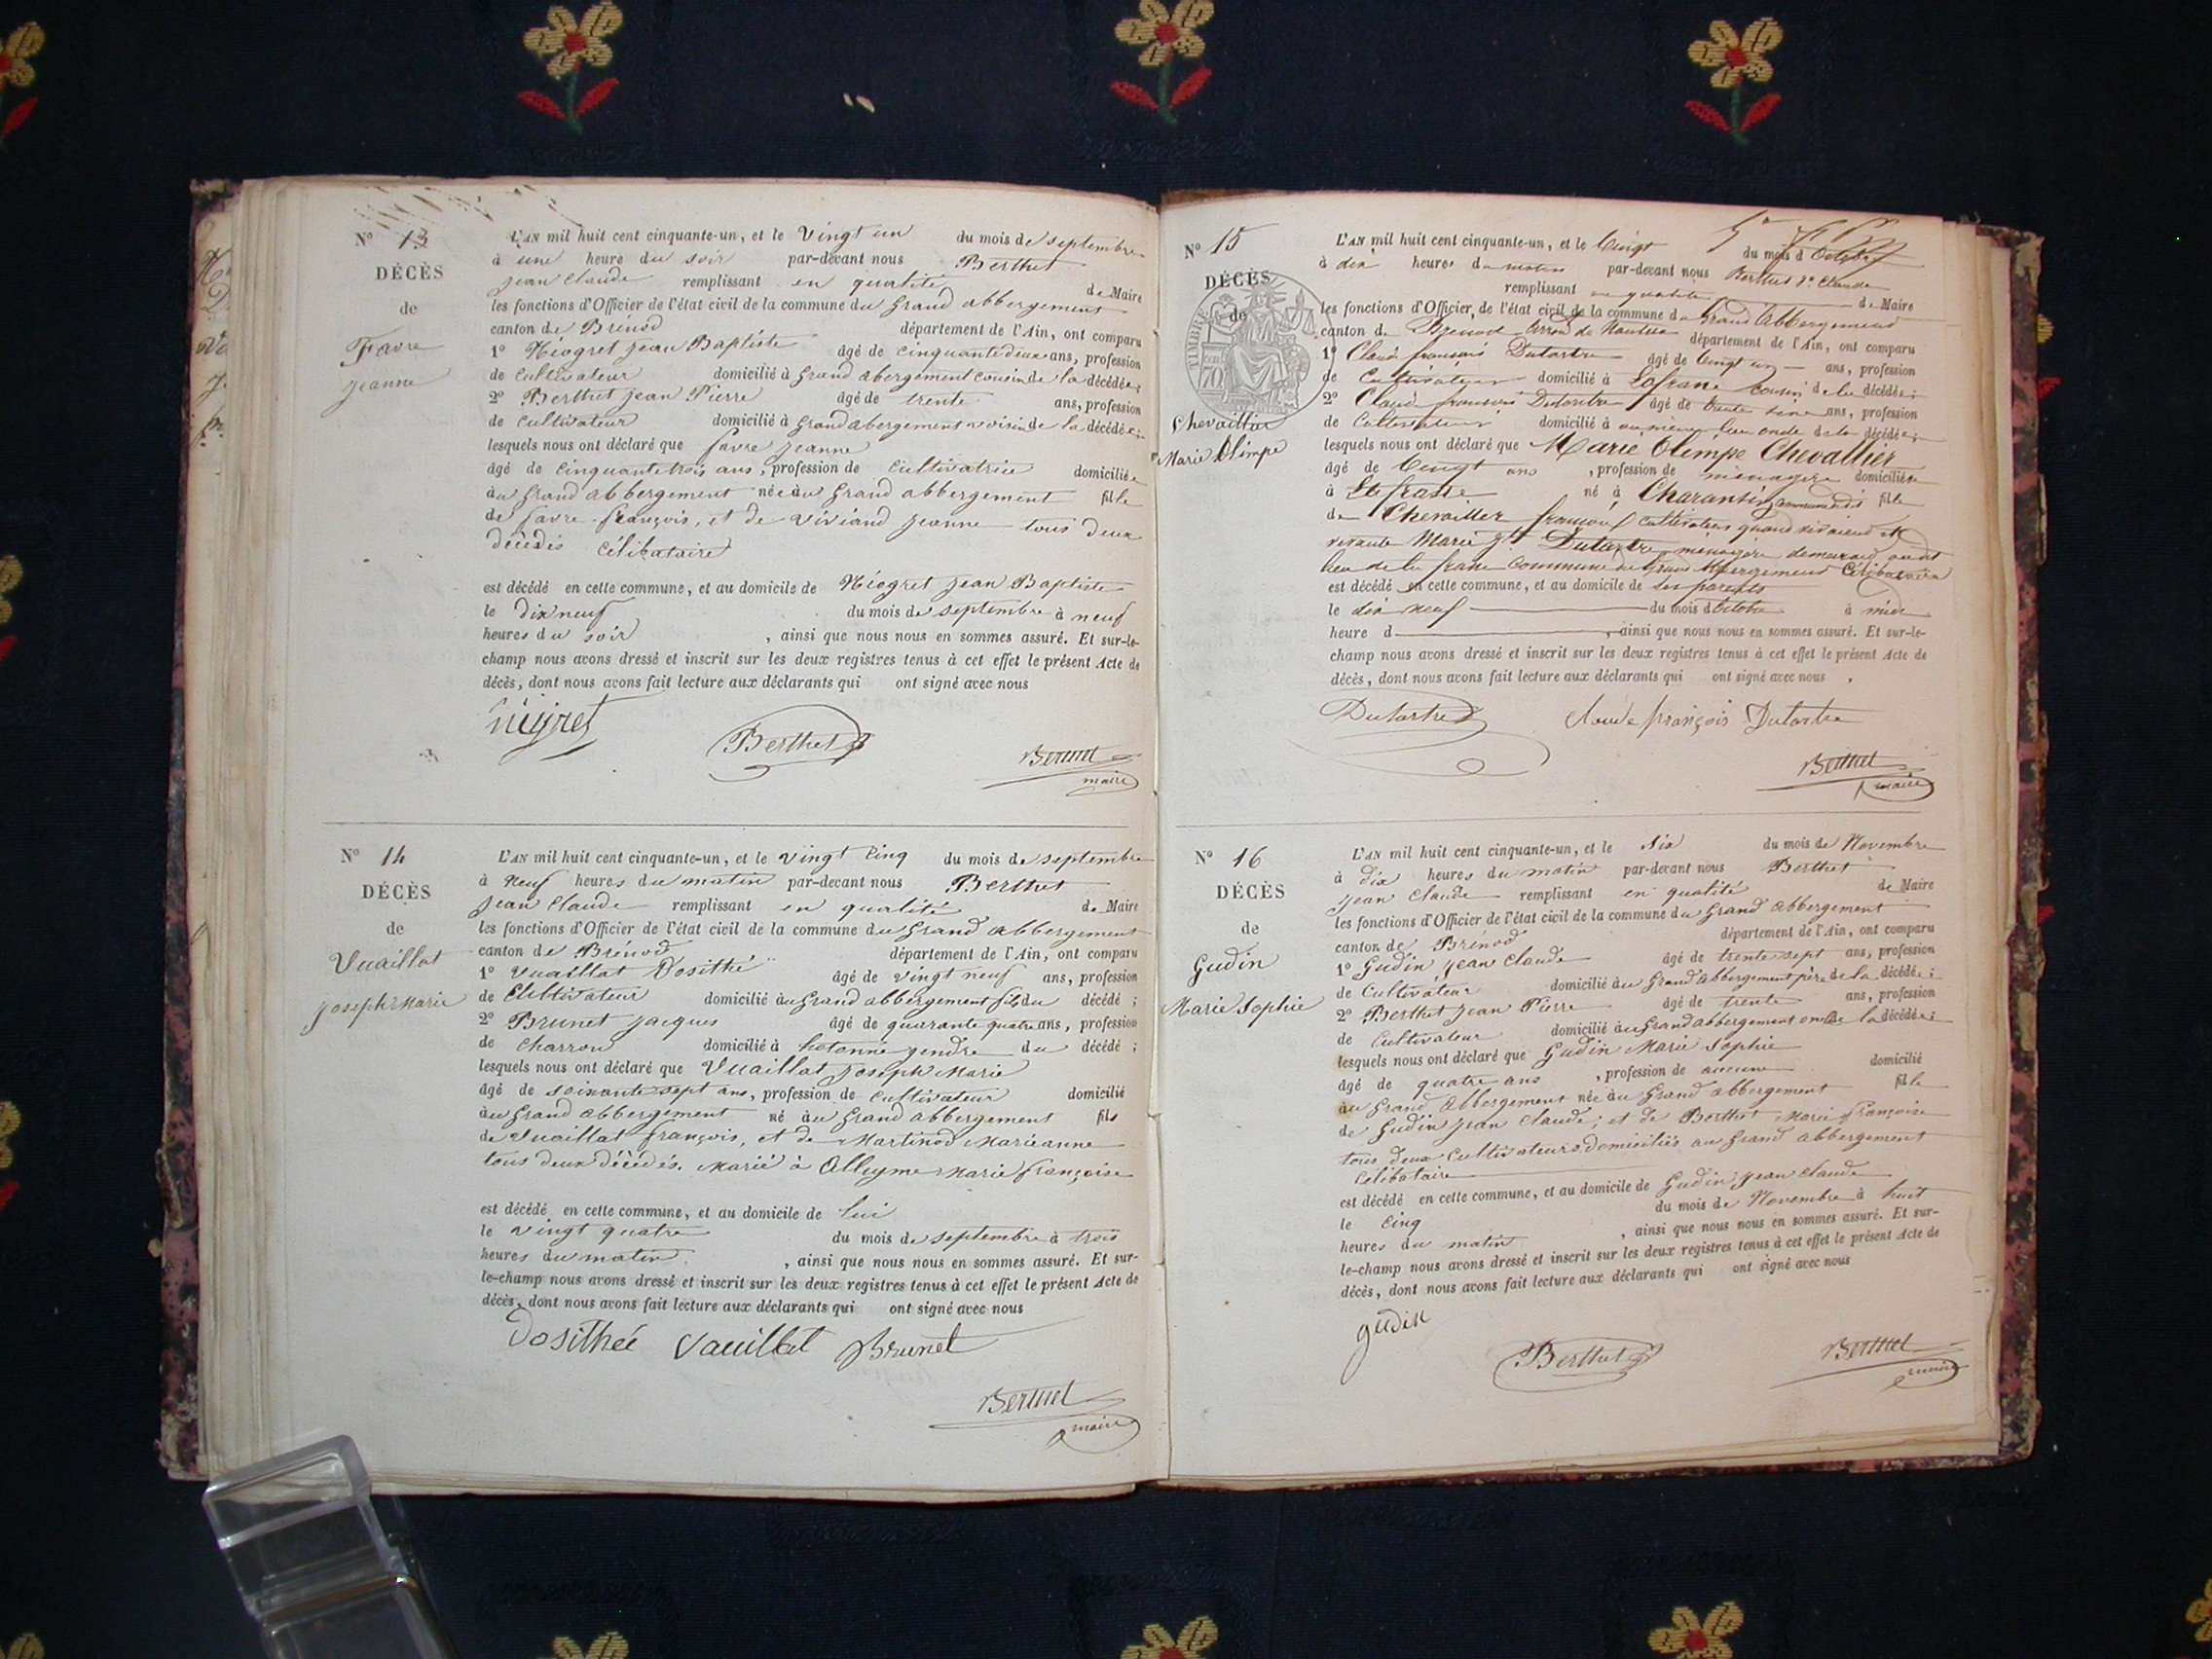 N° 13
DÉCÈS
de
Favre
Jeanne
L'AN mil huit cent cinquante-un, et le Vingt un du mois de septembre
à une heure du soir par-devant nous Berthet
Jean Claude remplissant en qualité de Maire
les fonctions d'Officier de l'état civil de la commune du Grand abbergement
canton de Brénod département de l'Ain, ont comparu
1° Niogret Jean Baptiste âgé de cinquante deux ans, profession
de cultivateur domicilié à Grand abergement cousin de la décédée;
2° Berthet Jean Pierre âgé de trente ans, profession
de cultivateur domicilié à Grand abergement voisin de la décédée;
lesquels nous ont déclaré que favre Jeanne
âgé de cinquante trois ans, profession de cultivatrice domiciliée
au Grand abbergement née au Grand abbergement fille
de favre françois, et de Viviand Jeanne tous deux
décédés célibataire
est décédé en cette commune, et au domicile de Niogret Jean Baptiste
le dix neuf du mois de septembre à neuf
heures du soir, ainsi que nous nous en sommes assuré. Et sur-le-
champ nous avons dressé et inscrit sur les deux registres tenus à cet effet le présent Acte de
décès, dont nous avons fait lecture aux déclarants qui ont signé avec nous
Berthet
Berthet
maire
N° 14
DÉCÈS
de
Vuaillat
Joseph Marie
L'AN mil huit cent cinquante-un, et le vingt cinq du mois de septembre
à neuf heures du matin par-devant nous Berthet
Jean Claude remplissant en qualité de Maire
les fonctions d'Officier de l'état civil de la commune du Grand abbergement
canton de Brénod département de l'Ain, ont comparu
1° Vuaillat Dosithé âgé de vingt neuf ans, profession
de Cultivateur domicilié au Grand abbergement fils du décédé;
2° Brunet Jacques âgé de quarante quatre ans, profession
de charron domicilié à hotonne gendre du décédé;
lesquels nous ont déclaré que Vuaillat Joseph Marie
âgé de soixante sept ans, profession de cultivateur domicilié
au Grand abbergement né au Grand abbergement fils
de Vuaillat françois, et de Martinod Marieanne
tous deux décédés. Marié à Alleyme Marie françoise
est décédé en cette commune, et au domicile de lui
le vingt quatre du mois de septembre à trois
heures du matin, ainsi que nous nous en sommes assuré. Et sur-
le-champ nous avons dressé et inscrit sur les deux registres tenus à cet effet le présent Acte de
décès, dont nous avons fait lecture aux déclarants qui ont signé avec nous
Dosithée Vauillat Brunet
Berthet
maire
N° 15
DÉCÈS
de
TIMBRE
70
Chevaillier
Marie Olimpe
L'AN mil huit cent cinquante-un, et le Vingt du mois d'Octobre
à dix heures du matin par-devant nous Berthet Jn Claude
remplissant en qualité de Maire
les fonctions d'Officier de l'état civil de la commune du Grand Abbergement
canton de Brenod arrond de Nantua département de l'Ain, ont comparu
1° Claude françois Dutartre âgé de vingt un ans, profession
de Cultivateur domicilié à Lafrasse cousin de la décédée;
2° Claude françois Dutartre âgé de trente ans, profession
de Cultivateur domicilié à au même lieu oncle de la décédée;
lesquels nous ont déclaré que Marie Olimpe Chevallier
âgé de Vingt ans, profession de ménagère domiciliée
à La frasse né à Charansin fille
de Chevallier françois cultivateur quand vivaient et
vivante Marie Dutartre ménagère demeurant audit
lieu de la frasse Commune du Grand Abbergement Célibataire
est décédé en cette commune, et au domicile de ses parents
le dix neuf du mois d'Octobre à midi
heure d, ainsi que nous nous en sommes assuré. Et sur-le-
champ nous avons dressé et inscrit sur les deux registres tenus à cet effet le présent Acte de
décès, dont nous avons fait lecture aux déclarants qui ont signé avec nous.
Dutartre Claude françois Dutartre
Berthet
maire
N° 16
DÉCÈS
de
Gudin
Marie Sophie
L'AN mil huit cent cinquante-un, et le Six du mois de Novembre
à dix heures du matin par-devant nous Berthet
Jean Claude remplissant en qualité de Maire
les fonctions d'Officier de l'état civil de la commune du Grand abbergement
canton de Brénod département de l'Ain, ont comparu
1° Gudin Jean Claude âgé de trente sept ans, profession
de Cultivateur domicilié au Grand Abbergement père de la décédée;
2° Berthet Jean Pierre âgé de trente ans, profession
de Cultivateur domicilié au Grand abbergement oncle de la décédée;
lesquels nous ont déclaré que Gudin Marie Sophie
âgé de quatre ans, profession de aucune domicilié
au Grand Abbergement née au Grand abbergement fille
de Gudin Jean Claude; et de Berthet Marie françoise
tous deux Cultivateurs domiciliés au Grand abbergement
Célibataire
est décédé en cette commune, et au domicile de Gudin Jean Claude
le cinq du mois de Novembre à huit
heures du matin, ainsi que nous nous en sommes assuré. Et sur-
le-champ nous avons dressé et inscrit sur les deux registres tenus à cet effet le présent Acte de
décès, dont nous avons fait lecture aux déclarants qui ont signé avec nous
gudin
Berthet
Berthet
maire